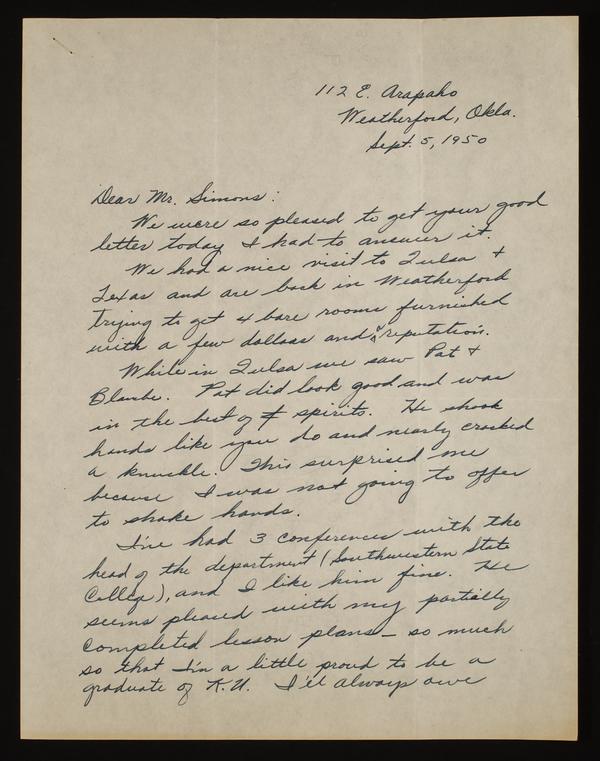 112 E. Arapaho
Weatherford, Okla.
Sept. 5, 1950
Dear Mr. Simons:
We were so pleased to get your good
letter today I had to answer it.
We had a nice visit to Tulsa +
Texas and are back in Weatherford
trying to get 4 bare rooms furnished
with a few dollars and a reputation.
While in Tulsa we saw Pat +
Blanche. Pat did look good and was
in the best of spirits. He shook
hands like you do and nearly cracked
a knuckle. This surprised me
because I was not going to offer
to shake hands.
I've had 3 conferences with the
head of the department (Southwestern State
College), and I like him fine. He
seems pleased with my partially
completed lesson plans – so much
so that I'm a little proud to be a
graduate of K.U. I'll always owe